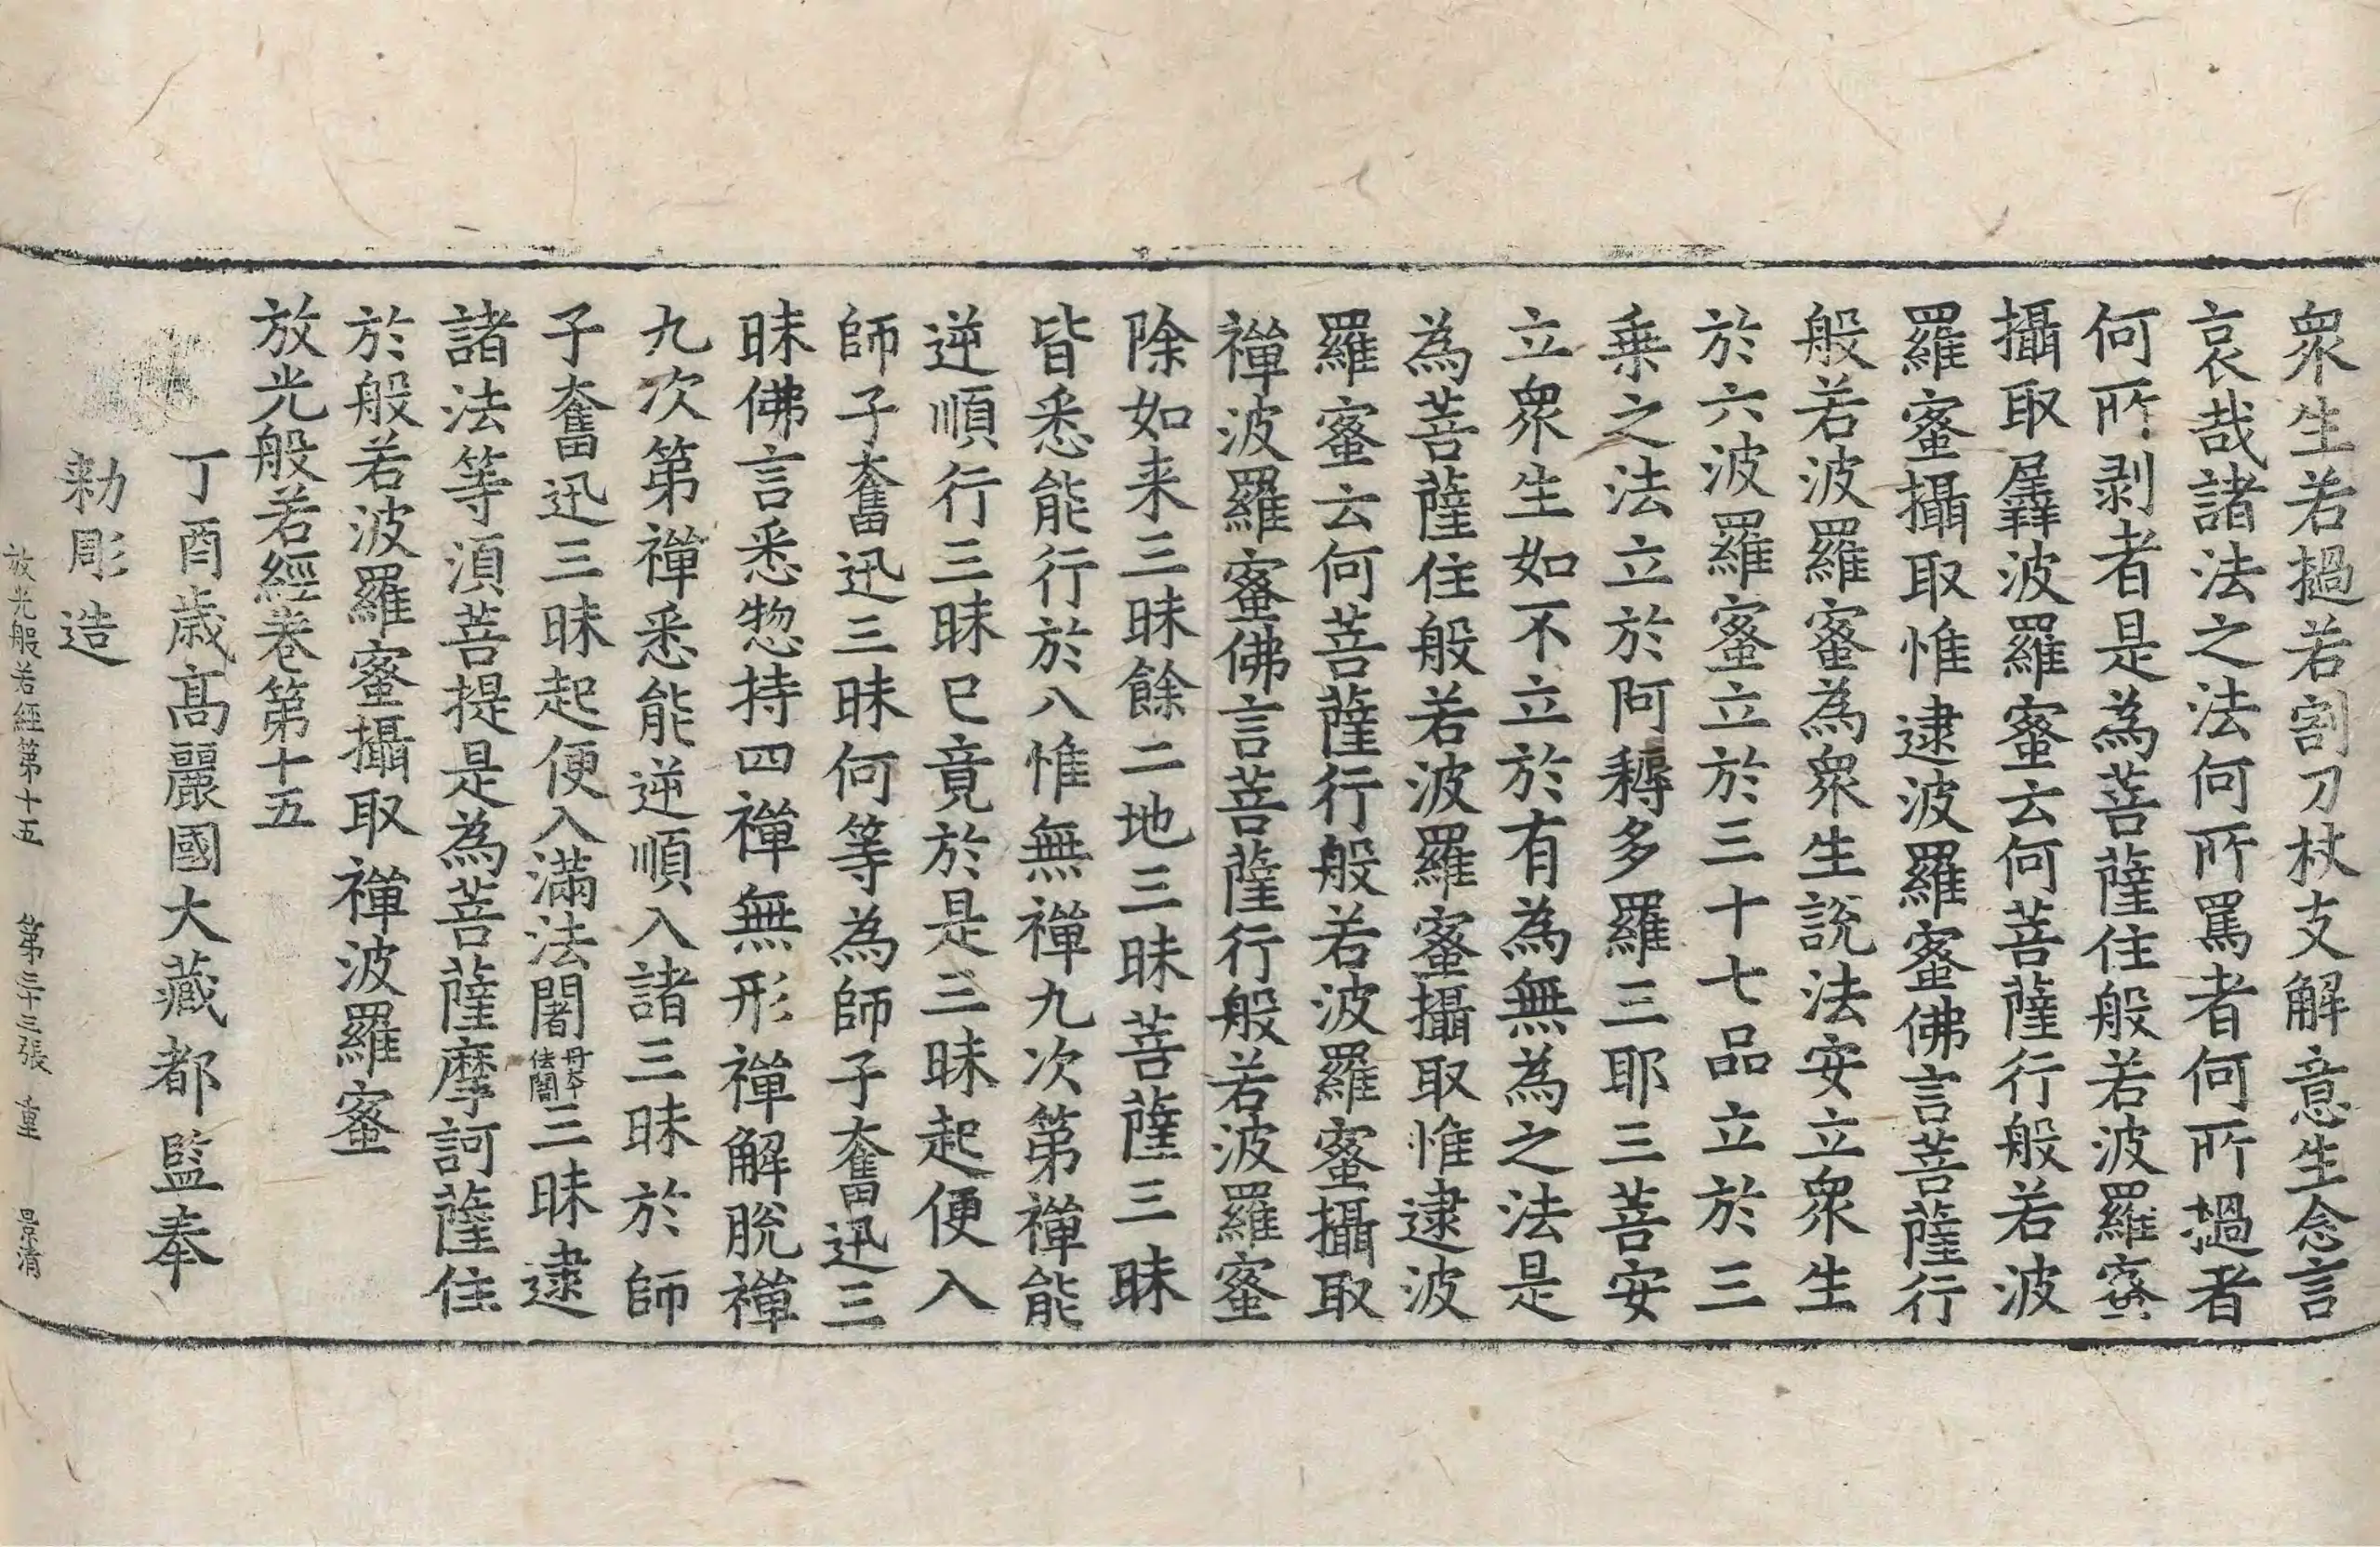 衆生若撾若割刀杖支解意生念言
哀哉諸法之法何所罵者何所撾者
何所剥者是為菩薩住般若波羅蜜
攝取羼波羅蜜云何菩薩行般若波
羅蜜攝取惟逮波羅蜜佛言菩薩行
般若波羅蜜為衆生說法安立衆生
於六波羅蜜立於三十七品立於三
乗之法立於阿耨多羅三耶三菩安
立衆生如不立於有為無為之法是
為菩薩住般若波羅蜜攝取惟逮波
羅蜜云何菩薩行般若波羅蜜攝取
禪波羅蜜佛言菩薩行般若波羅蜜
除如来三昧餘二地三昧菩薩三昧
皆悉能行於八惟無禪九次第禪能
逆順行三昧已竟於是三昧起便入
師子奮迅三昧何等為師子奮迅三
昧佛言悉惣持四禪無形禪解脫禪
九次第禪悉能逆順入諸三昧於師
子奮迅三昧起便入滿法闇丹本法闇三昧逮
諸法等湏菩提是為菩薩摩訶薩住
於般若波羅蜜攝取禪波羅蜜
放光般若經卷第十五
丁酉歳髙麗國大藏都監奉
勑彫造
放光般若經第十五 第三十三張 重 景清